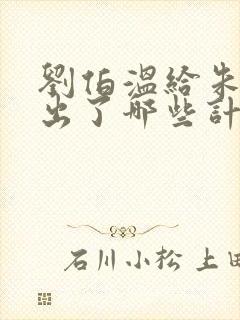 劉伯溫給朱
出了哪些計
石川小松 上田